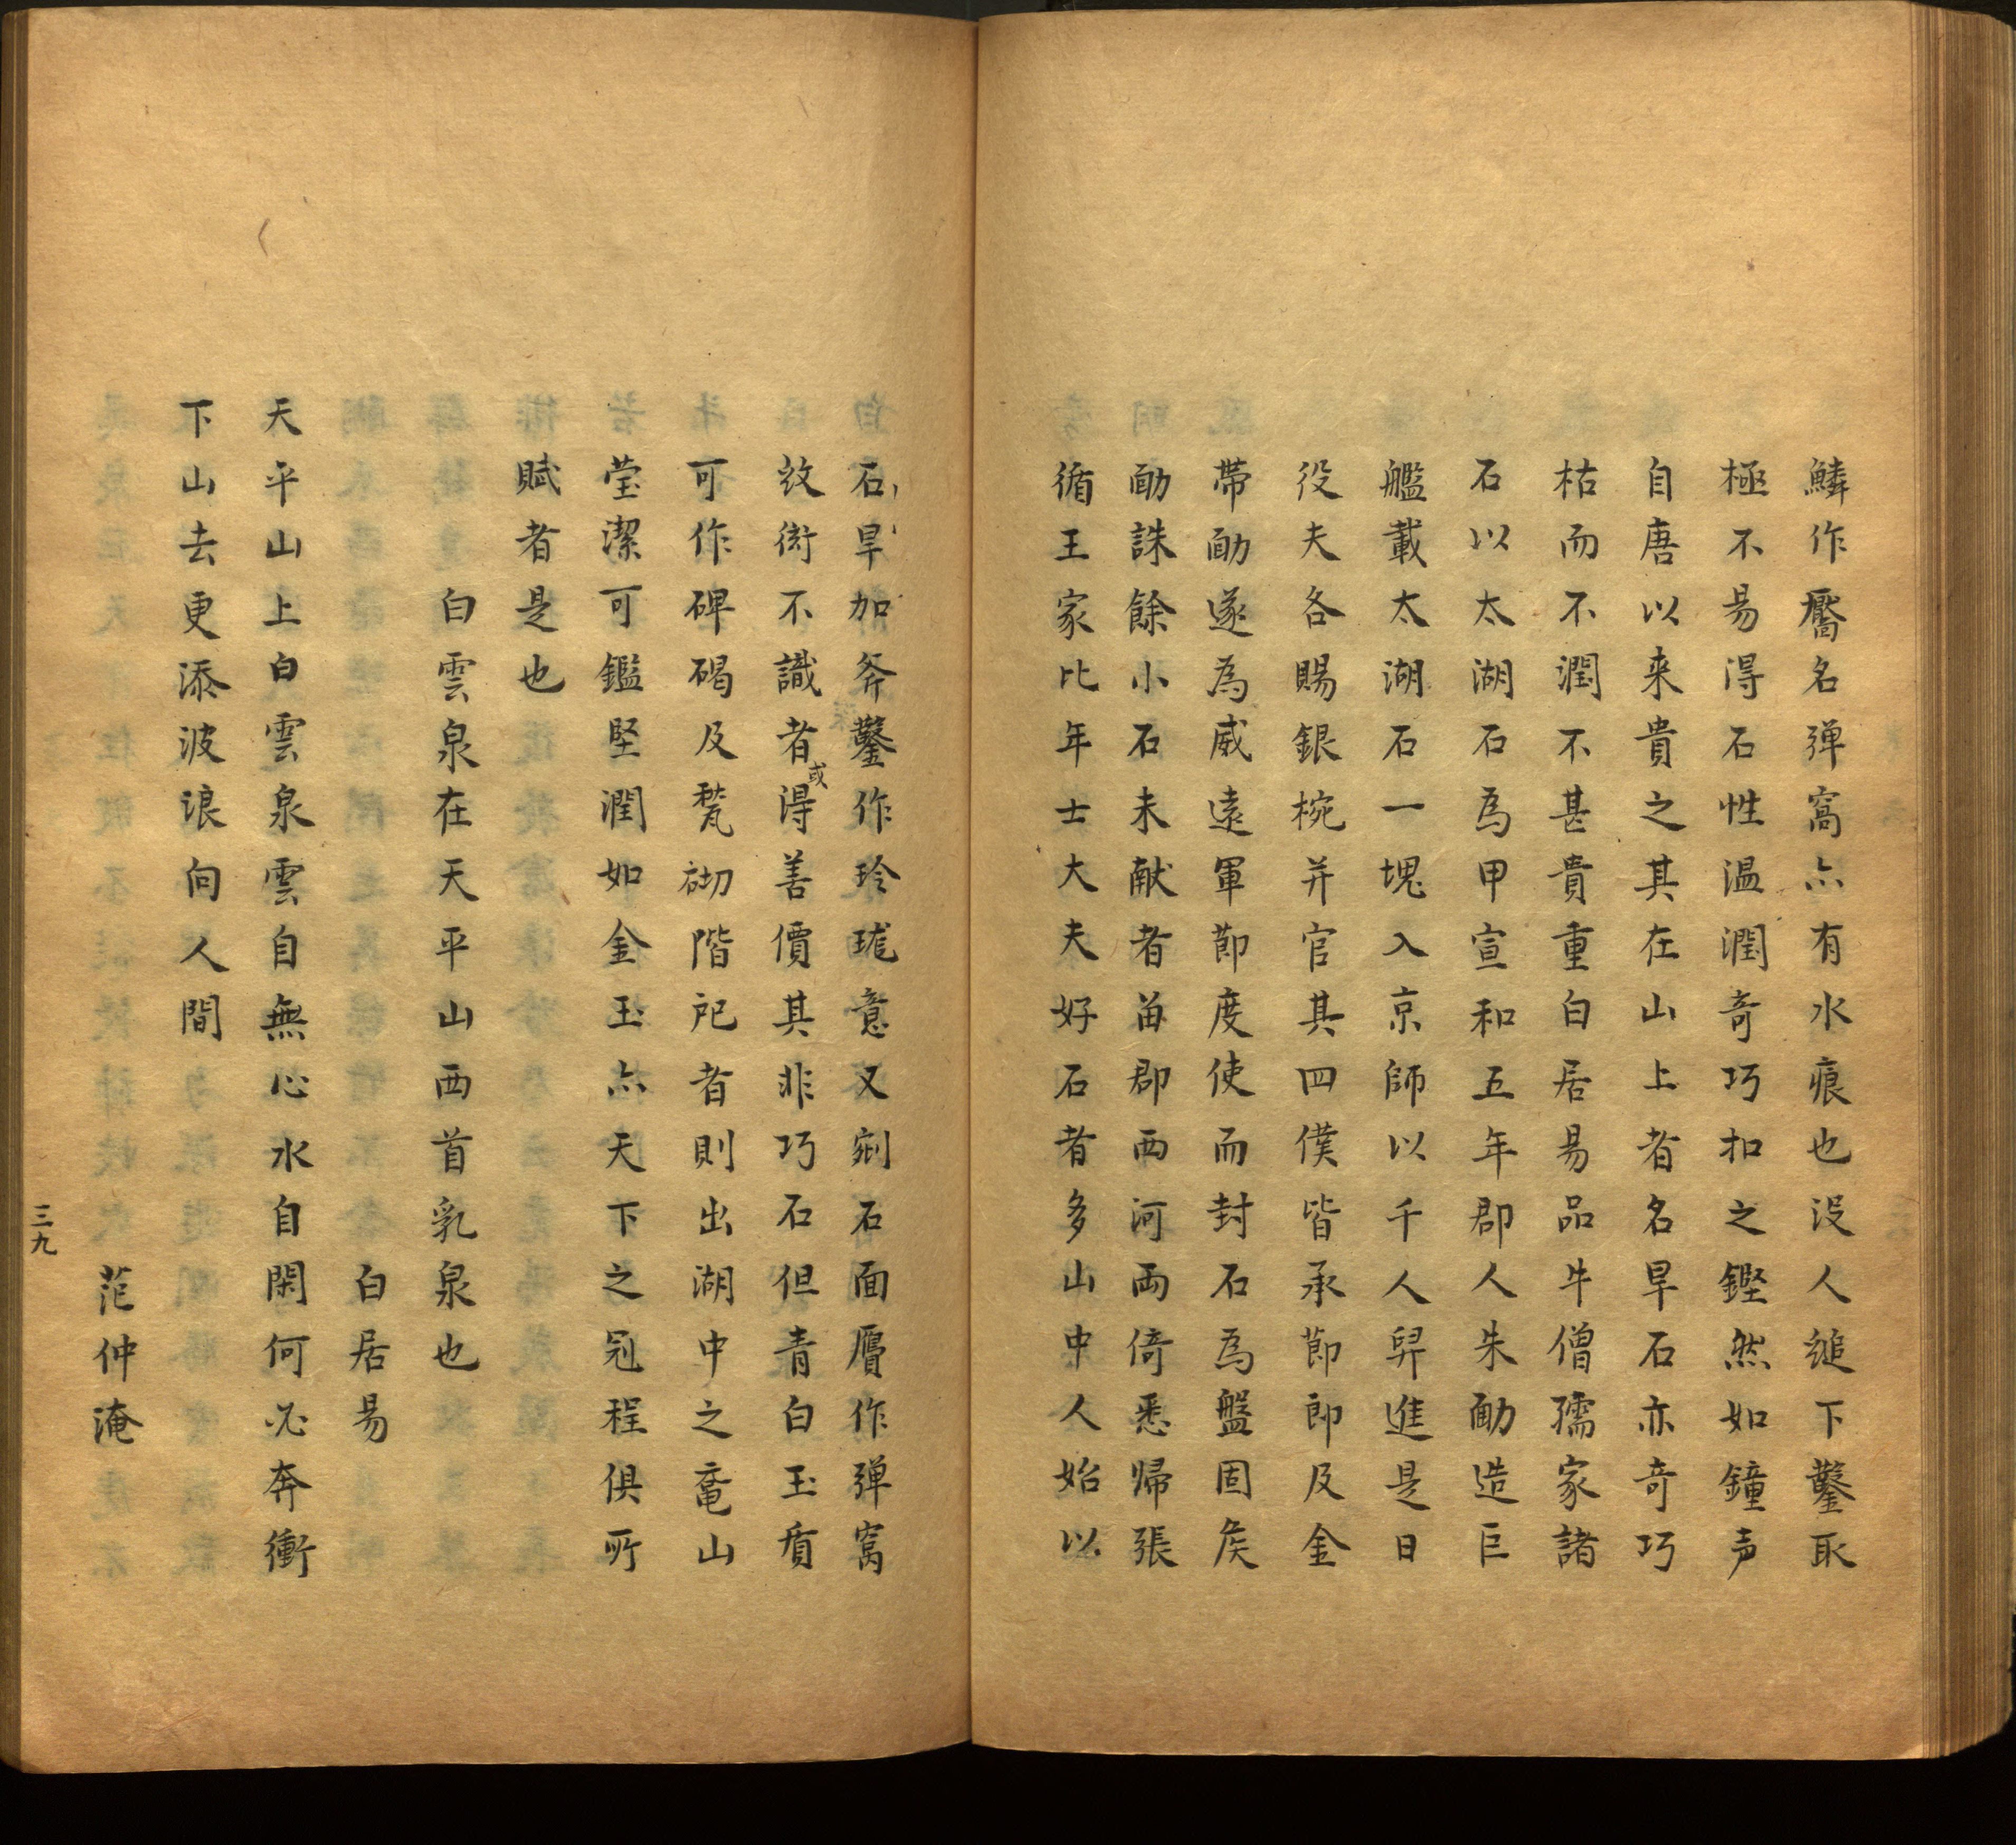 鱗作靨名弹窩亦有水痕也没人縋下鑿取
極不易得石性温潤奇巧扣之鏗然如鐘声
自唐以来貴之其在山上者名旱石亦奇巧
枯而不潤不甚貴重白居易品牛僧孺家諸
石以太湖石為甲宣和五年郡人朱勔造巨
艦載太湖石一塊入京師以千人舁進是日
役夫各賜銀椀并官其四僕皆承節郎及金
帶勔遂為威遠軍節度使而封石為盤固侯
勔誅餘小石未献者畄郡西河兩倚悉歸張
循王家比年士大夫好石者多山中人始以
石旱加斧鑿作玲瓏意又剜石面贗作弹窩
效衒不識者或得善價其非巧石但青白玉質
可作碑碣及甃砌階戺者則出湖中之黿山
莹潔可鑑堅潤如金玉亦天下之冠程俱所
賦者是也
白雲泉在天平山西首乳泉也
白居易
天平山上白雲泉雲自無心水自閑何必奔衝
下山去更添波浪向人間
范仲淹
三九